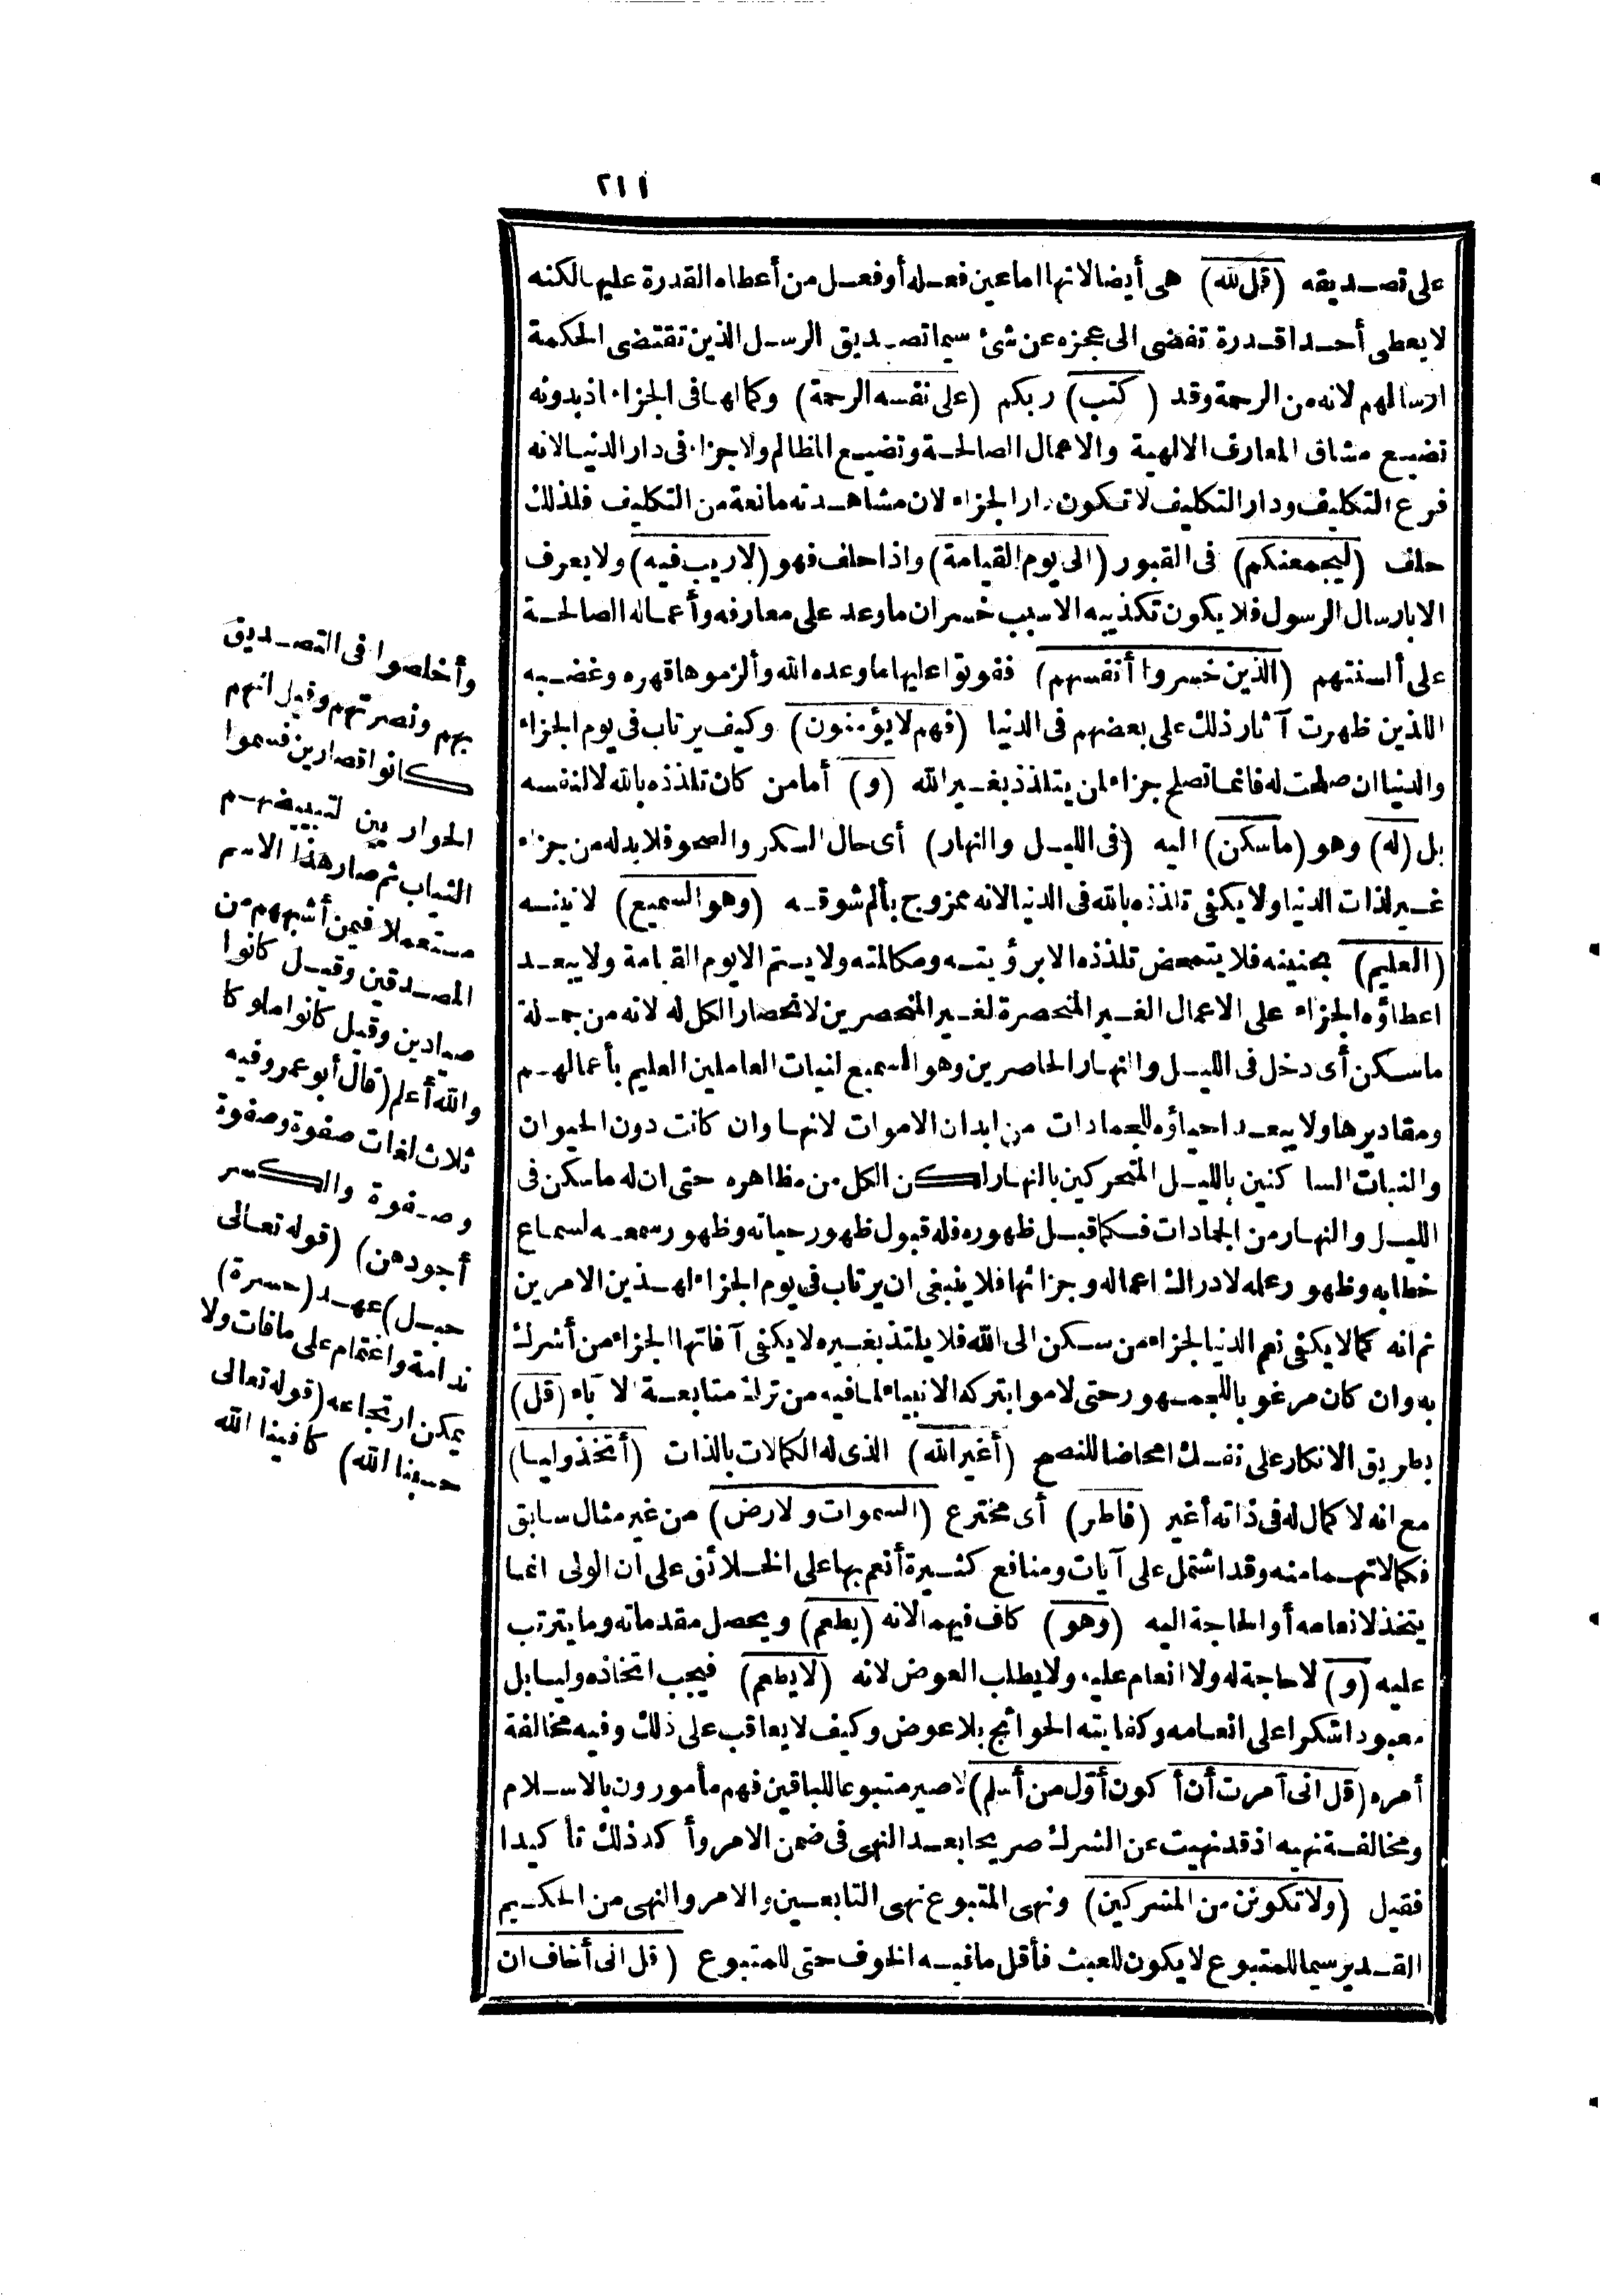 ٢١١
على تصديقه (قل لله) هى أيضا لانها اما عين فعله أو فعل من أعطاه القدرة عليها لكنه
لا يعطى أحدا قدرة تفضى الى عجزه عن شئ سيما تصديق الرسل الذين تقتضى الحكمة
ارسالهم لانه من الرحمة وقد (كتب) ربكم (على نفسه الرحمة) وكمالها فى الجزاء اذ بدونه
تضييع مشاق المعارف الالهية والاعمال الصالحة وتضييع المظالم ولا جزاء فى دار الدنيا لانه
فرع التكليف ودار التكليف لا تكون دار الجزاء لان مشاهدته مانعة من التكليف فلذلك
حلف (ليجمعنكم) فى القبور (الى يوم القيامة) واذا حلف فهو (لا ريب فيه) ولا يعرف
الا بارسال الرسول فلا يكون تكذيبه الا سبب خسران ما وعد على معارفه وأعماله الصالحة
على ألسنتهم (الذين خسروا أنفسهم) ففوتوا عليها ما وعده الله وألزموها قهره وغضبه
اللذين ظهرت آثار ذلك على بعضهم فى الدنيا (فهم لا يؤمنون) وكيف يرتاب فى يوم الجزاء
والدنيا ان صلحت له فانما تصلح جزاء لمن يتلذذ بغير الله (و) أما من كان تلذذه بالله لا لنفسه
بل (له) وهو (ما سكن) اليه (فى الليل والنهار) أى حال السكر والصحو فلا بد له من جزاء
غير لذات الدنيا ولا يكفى تلذذه بالله فى الدنيا لانه ممزوج بألم شوقه (وهو السميع) لانينه
(العليم) بحنينه فلا يتمحض تلذذه الا برؤيته ومكالمته ولا يتم الا يوم القيامة ولا يبعد
اعطاؤه الجزاء على الاعمال الغير المنحصرة لغير المنحصرين لانحصار الكل له لانه من جملة
ما سكن أى دخل فى الليل والنهار الحاصرين وهو السميع لنيات العاملين العليم بأعمالهم
ومقاديرها ولا يبعد احياؤه للجمادات من ابدان الاموات لانها وان كانت دون الحيوان
والنبات الساكنين بالليل المتحركين بالنهار لكن الكل من مظاهره حتى ان له ما سكن فى
الليل والنهار من الجمادات فكما قبل ظهوره فله قبول ظهور حياته وظهور سمعه لسماع
خطابه وظهور علمه لادراك اعماله وجزائها فلا ينبغى ان يرتاب فى يوم الجزاء لهذين الامرين
ثم انه كما لا يكفى نعم الدنيا لجزاء من سكن الى الله فلا يلتذ بغيره لا يكفى آفاتها الجزاء من أشرك
به وان كان مرغوبا للجمهور حتى لاموا بتركه الانبياء لما فيه من ترك متابعة الآباء (قل)
بطريق الانكار على نفسك امحاضا للنصح (أغير الله) الذى له الكمالات بالذات (أتخذ وليا)
مع انه لا كمال له فى ذاته أغير (فاطر) أى مخترع (السموات ولارض) من غير مثال سابق
فكمالاتهما منه وقد اشتمل على آيات ومنافع كثيرة أنعم بها على الخلائق على ان الولى انما
يتخذ لانعامه أو الحاجة اليه (وهو) كاف فيهما لانه (يطعم) ويحصل مقدماته وما يترتب
عليه (و) لا حاجة له ولا انعام عليه ولا يطلب العوض لانه (لا يطعم) فيجب اتخاذه وليا بل
معبودا شكرا على انعامه وكفايته الحوائج بلا عوض وكيف لا يعاقب على ذلك وفيه مخالفة
أمره (قل انى آمرت أن أكون أول من أسلم) لاصير متبوعا للباقين فهم مأمورون بالاسلام
ومخالفة نهيه اذ قد نهيت عن الشرك صريحا بعد النهى فى ضمن الامر وأكد ذلك تأكيدا
فقيل (ولا تكونن من المشركين) ونهى المتبوع نهى التابعين والامر والنهى من الحكيم
القدير سيما للمتبوع لا يكون للعبث فأقل ما فيه الخوف حتى للمتبوع (قل انى أخاف ان
وأخلصوا فى التصديق
بهم ونصرتهم وقيل انهم
كانوا قصارين فسموا
الحواريين لتبييضهم
الثياب ثم صار هذا الاسم
مستعملا فيمن أشبههم من
المصدقين وقيل كانوا
صيادين وقيل كانوا ملوكا
والله أعلم (قال أبو عمرو فيه
ثلاث لغات صفوة وصفوة
وصفوة والكسر
أجودهن) (قوله تعالى
حبل) عهد (حسرة)
ندامة واغتمام على ما فات ولا
يمكن ارتجاعه (قوله تعالى
حسبنا الله) كافينا الله